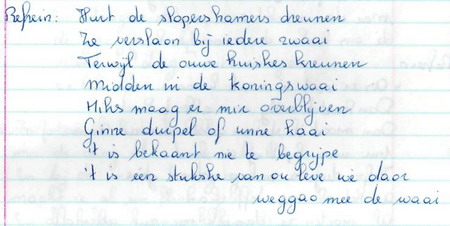 Refrein: Hurt de slopershamers dreunen
Ze verslaon bij iedere zwaai
Terwijl de ouwe huiskes kreunen
Midden in de koningswaai
Niks maag er mir overblijven
Ginne duipel of unne kaai
't is bekaant nie te begrijpe
't is een stukske van ou leve wè daor
weggao mee de waai